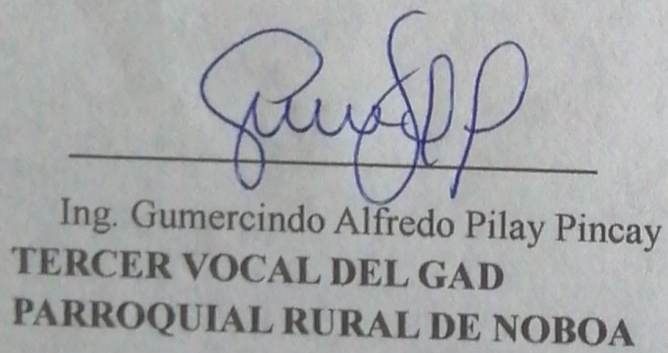 Ing. Gumercindo Alfredo Pilay Pincay
TERCER VOCAL DEL GAD
PARROQUIAL RURAL DE NOBOA